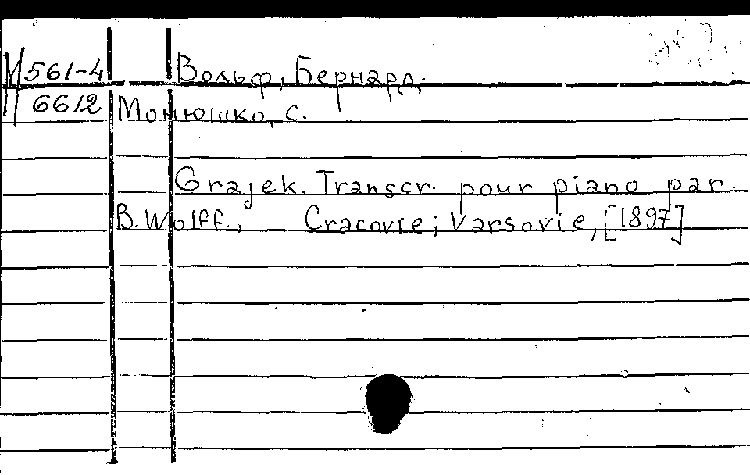 М 561-4 Вольф, Бернард.
6612 Монюшко, С.
Grajek. Transcr. pour piano par
B. Wolff., Cracovie; Varsovie, [1897]